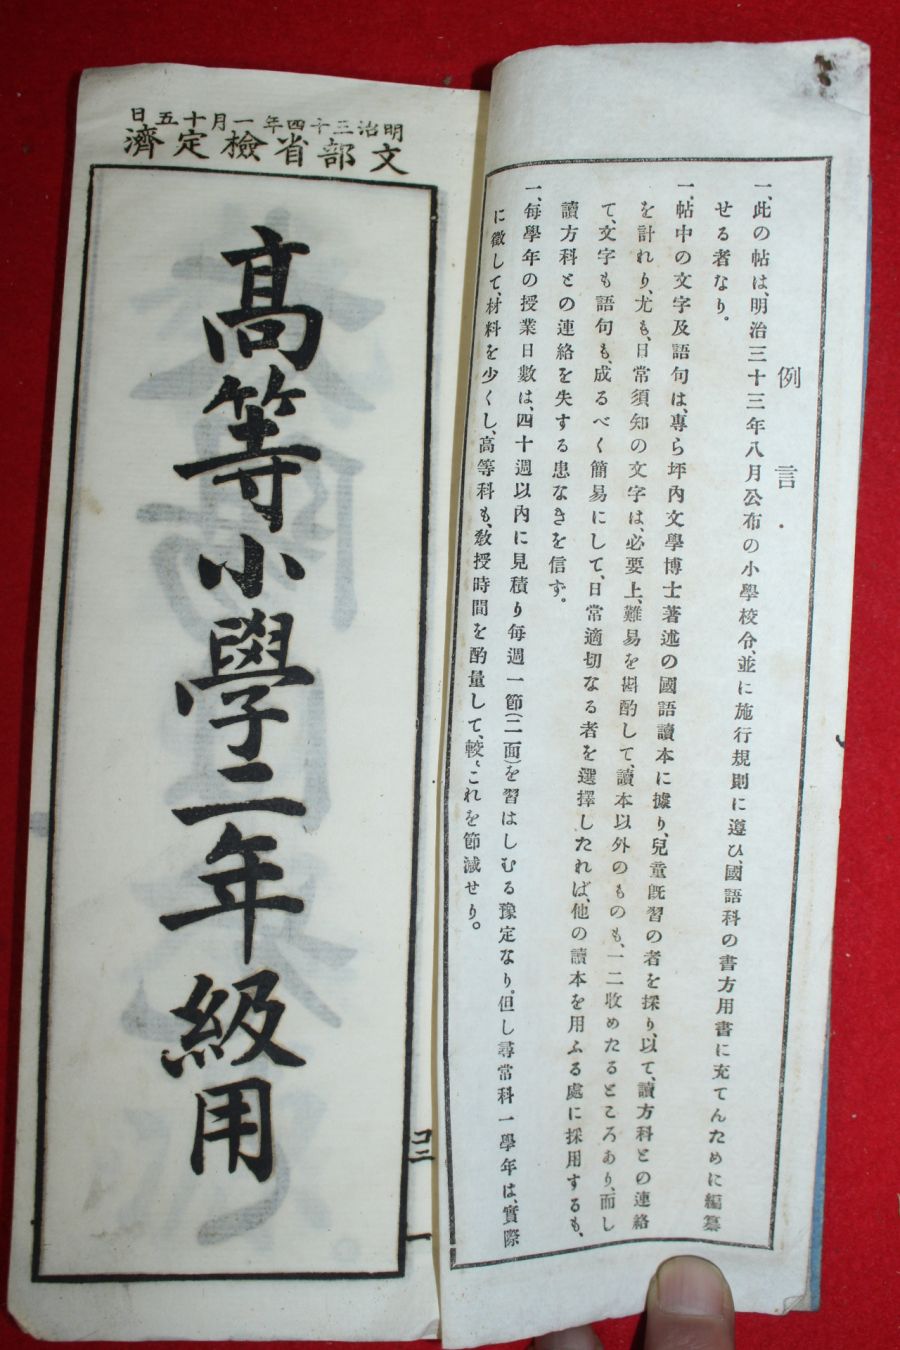 例言
一、此の帖は、明治三十三年八月公布の小學校令、並に施行規則に遵ひ、國語科の書方用書に充てんために編纂
せる者なり。
一、帖中の文字及語句は、專ら坪內文學博士著述の國語讀本に據り、兒童旣習の者を採り、以て、讀方科との連絡
を計れり、尤も、日常須知の文字は、必要上、難易を斟酌して、讀本以外のものも、一二收めたるところあり、而し
て、文字も語句も、成るべく簡易にして、日常適切なる者を選擇したれば、他の讀本を用ふる處に採用するも、
讀方科との連絡を失する患なきを信ず。
一、每學年の授業日數は、四十週以內に見積り每週一節(二面)を習はしむる豫定なり。但し尋常科一學年は、實際
に徵して、材料を少くし、高等科も、敎授時間を酌量して、較〻これを節減せり。
明治三十四年一月十五日
文部省檢定濟
高等小學二年級用
コ二
一